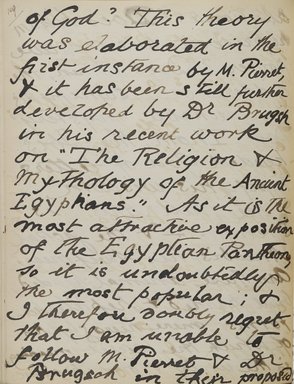 of God? This theory
was elaborated in the
first instance by M. Pierret,
& it has been still further
developed by Dr Brugsch
in his recent work
on "The Religion &
Mythology of the Ancient
Egyptians." As it is the
most attractive exposition
of the Egyptian Pantheon,
so it is undoubtedly
the most popular; &
I therefore doubly regret
that I am unable to
follow M. Pierret & Dr
Brugsch in their proposed